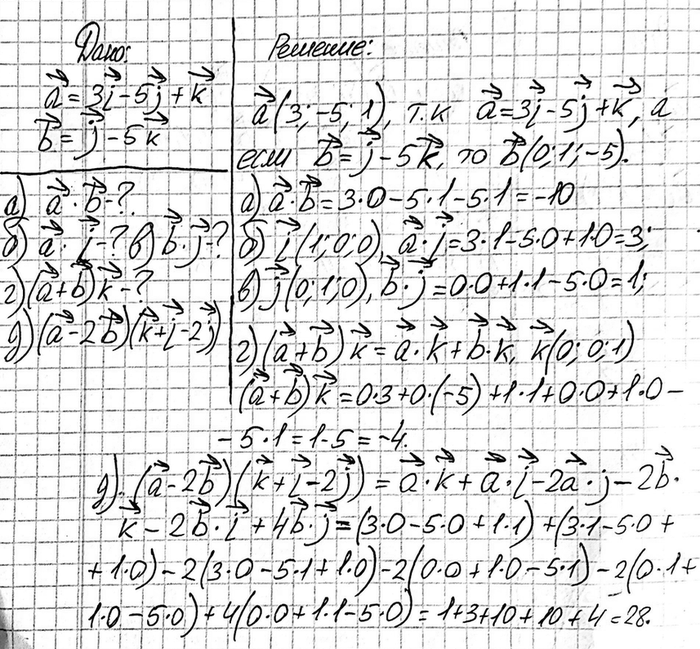 Дано:
a⃗ = 3i⃗ - 5j⃗ + k⃗
b⃗ = j⃗ - 5k⃗
а) a⃗ · b⃗ - ?
б) a⃗ · i⃗ - ? в) b⃗ · j⃗ - ?
г) (a⃗ + b⃗) k⃗ - ?
д) (a⃗ - 2b⃗)(k⃗ + i⃗ - 2j⃗)
Решение:
a⃗ (3; -5; 1), т.к a⃗ = 3i⃗ - 5j⃗ + k⃗, а
если b⃗ = j⃗ - 5k⃗, то b⃗ (0; 1; -5).
а) a⃗ · b⃗ = 3·0 - 5·1 - 5·1 = -10
б) i⃗ (1; 0; 0), a⃗ · i⃗ = 3·1 - 5·0 + 1·0 = 3;
в) j⃗ (0; 1; 0), b⃗ · j⃗ = 0·0 + 1·1 - 5·0 = 1;
г) (a⃗ + b⃗) k⃗ = a⃗ · k⃗ + b⃗ · k⃗, k⃗ (0; 0; 1)
(a⃗ + b⃗) k⃗ = 0·3 + 0·(-5) + 1·1 + 0·0 + 1·0 -
- 5·1 = 1 - 5 = -4.
д) (a⃗ - 2b⃗)(k⃗ + i⃗ - 2j⃗) = a⃗ · k⃗ + a⃗ · i⃗ - 2a⃗ · j - 2b⃗ ·
k⃗ - 2b⃗ · i⃗ + 4b⃗ · j⃗ = (3·0 - 5·0 + 1·1) + (3·1 - 5·0 +
+ 1·0) - 2(3·0 - 5·1 + 1·0) - 2(0·0 + 1·0 - 5·1) - 2(0·1 +
1·0 - 5·0) + 4(0·0 + 1·1 - 5·0) = 1 + 3 + 10 + 10 + 4 = 28.